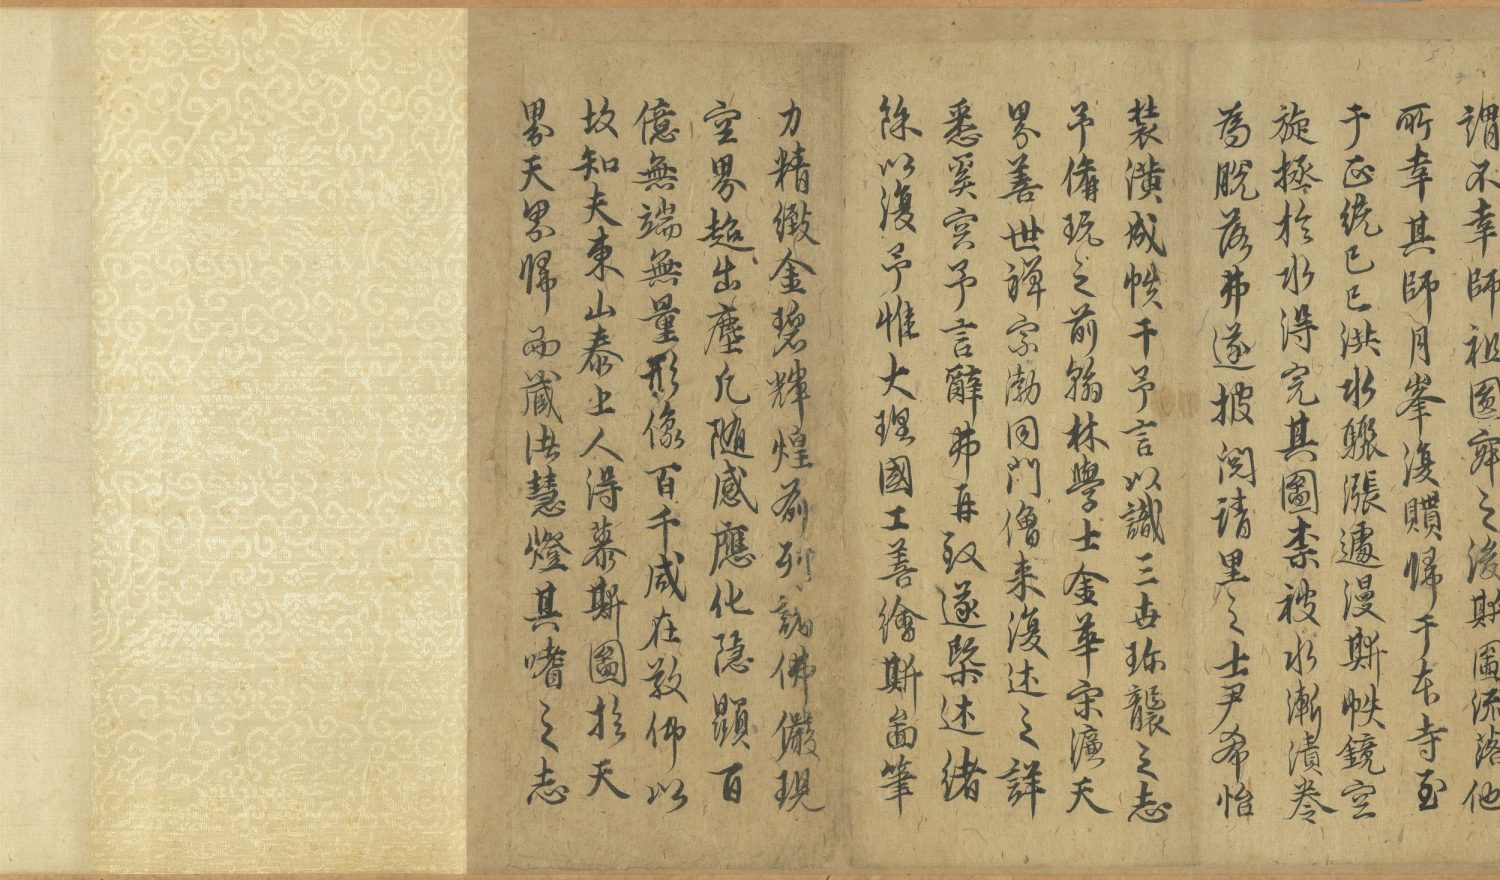 謂不幸師祖圓寂之後斯圖流落他
所幸其師月峯復贖歸于本寺至
于正統己巳洪水驟漲遽漫斯帙鏡空
旋拯於水得完其圖柰被水漸漬卷
為脫落弗遂披閱請里之士尹希怡
裝潢成帙干予言以識三世珎襲之志
予備玩之前翰林學士金華宋濂天
界善世禪宗泐同門僧来復述之詳
悉奚容予言辭弗再致遂槩述緒
餘以復予惟大理國工善繪斯啚筆
力精緻金碧輝煌前列諸佛儼現
空界超出塵凡隨感應化隱顯百
億無端無量形像百千咸在敬仰以
故知夫東山泰上人得慕斯圖於天
界天界歸而藏法慧燈其嗜之志